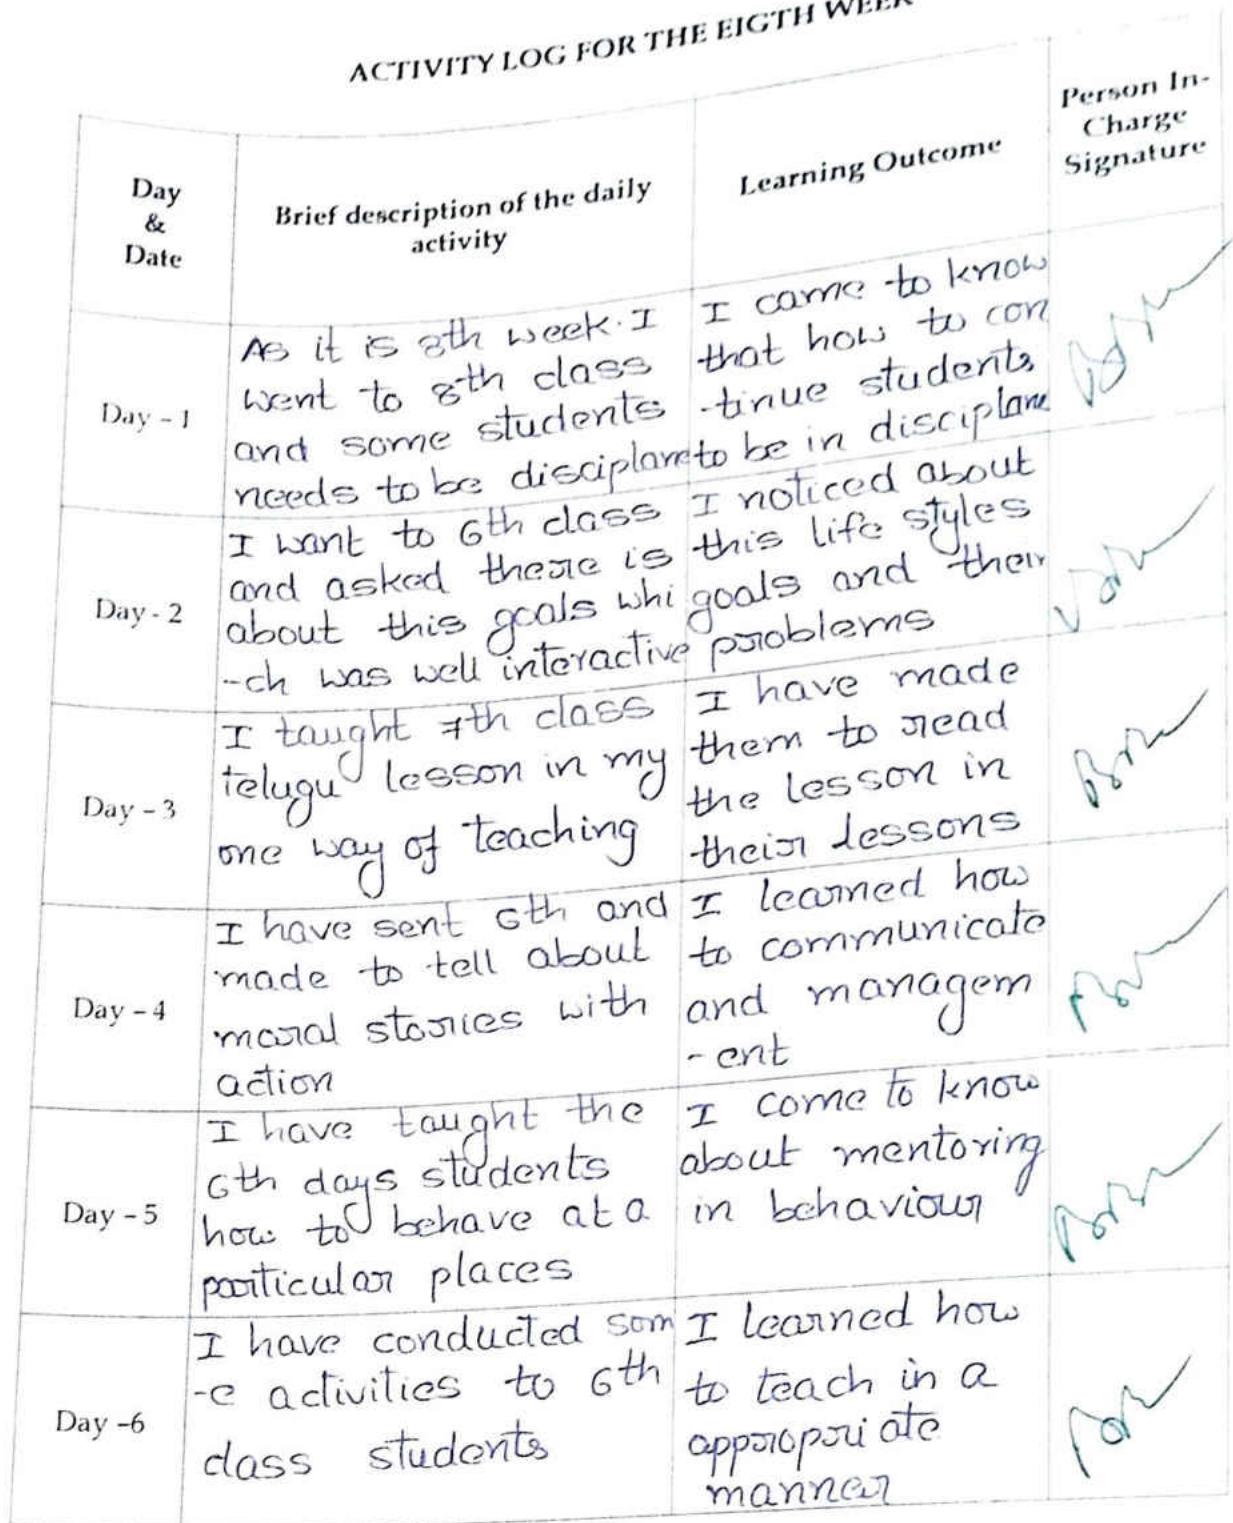 ACTIVITY LOG FOR THE EIGTH WEEK
Day
&
Date
Brief description of the daily
activity
Learning Outcome
Person In-
Charge
Signature
Day - 1
As it is 8th week. I
went to 8th class
and some students
needs to be disciplane
I came to know
that how to con
-tinue students
to be in disciplane
Day - 2
I want to 6th class
and asked there is
about this goals whi
-ch was well interactive
I noticed about
this life styles
goals and their
problems
Day - 3
I taught 7th class
telugu lesson in my
one way of teaching
I have made
them to read
the lesson in
their lessons
Day - 4
I have sent 6th and
made to tell about
moral stories with
action
I learned how
to communicate
and managem
- ent
Day - 5
I have taught the
6th days students
how to behave at a
particular places
I come to know
about mentoring
in behaviour
Day -6
I have conducted som
-e activities to 6th
class students
I learned how
to teach in a
appropriate
manner